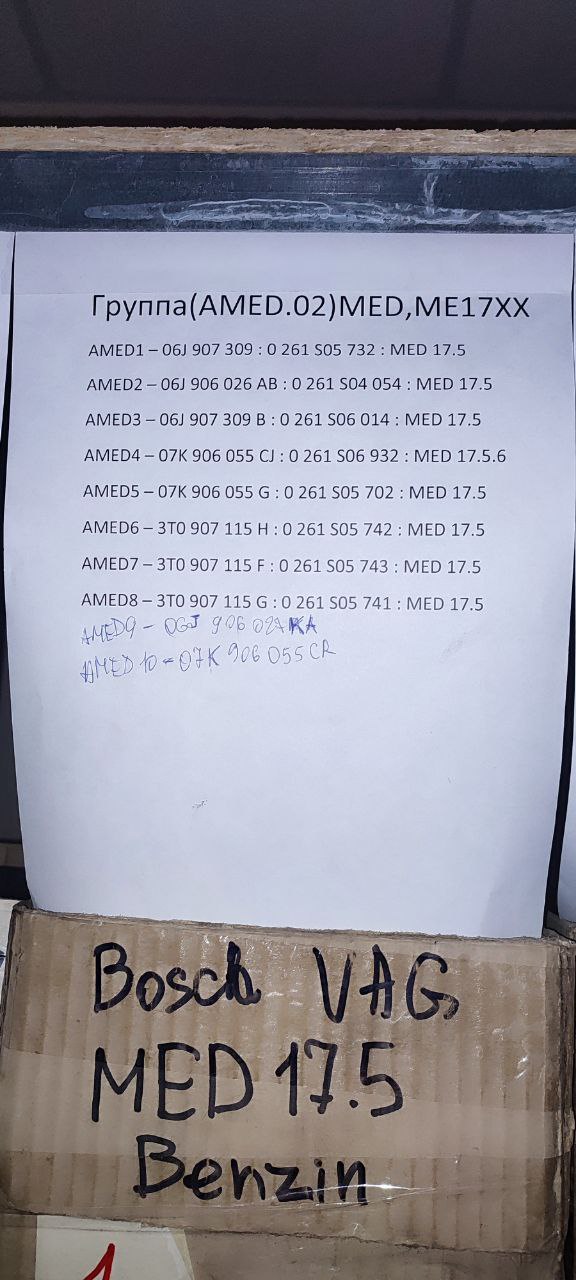 Группа(AMED.02)MED,ME17XX
AMED1 – 06J 907 309 : 0 261 S05 732 : MED 17.5
AMED2 – 06J 906 026 AB : 0 261 S04 054 : MED 17.5
AMED3 – 06J 907 309 B : 0 261 S06 014 : MED 17.5
AMED4 – 07K 906 055 CJ : 0 261 S06 932 : MED 17.5.6
AMED5 – 07K 906 055 G : 0 261 S05 702 : MED 17.5
AMED6 – 3T0 907 115 H : 0 261 S05 742 : MED 17.5
AMED7 – 3T0 907 115 F : 0 261 S05 743 : MED 17.5
AMED8 – 3T0 907 115 G : 0 261 S05 741 : MED 17.5
AMED9 – 906
AMED 10 – 07K 906 055 CR
Bosch VAG
MED 17.5
Benzin